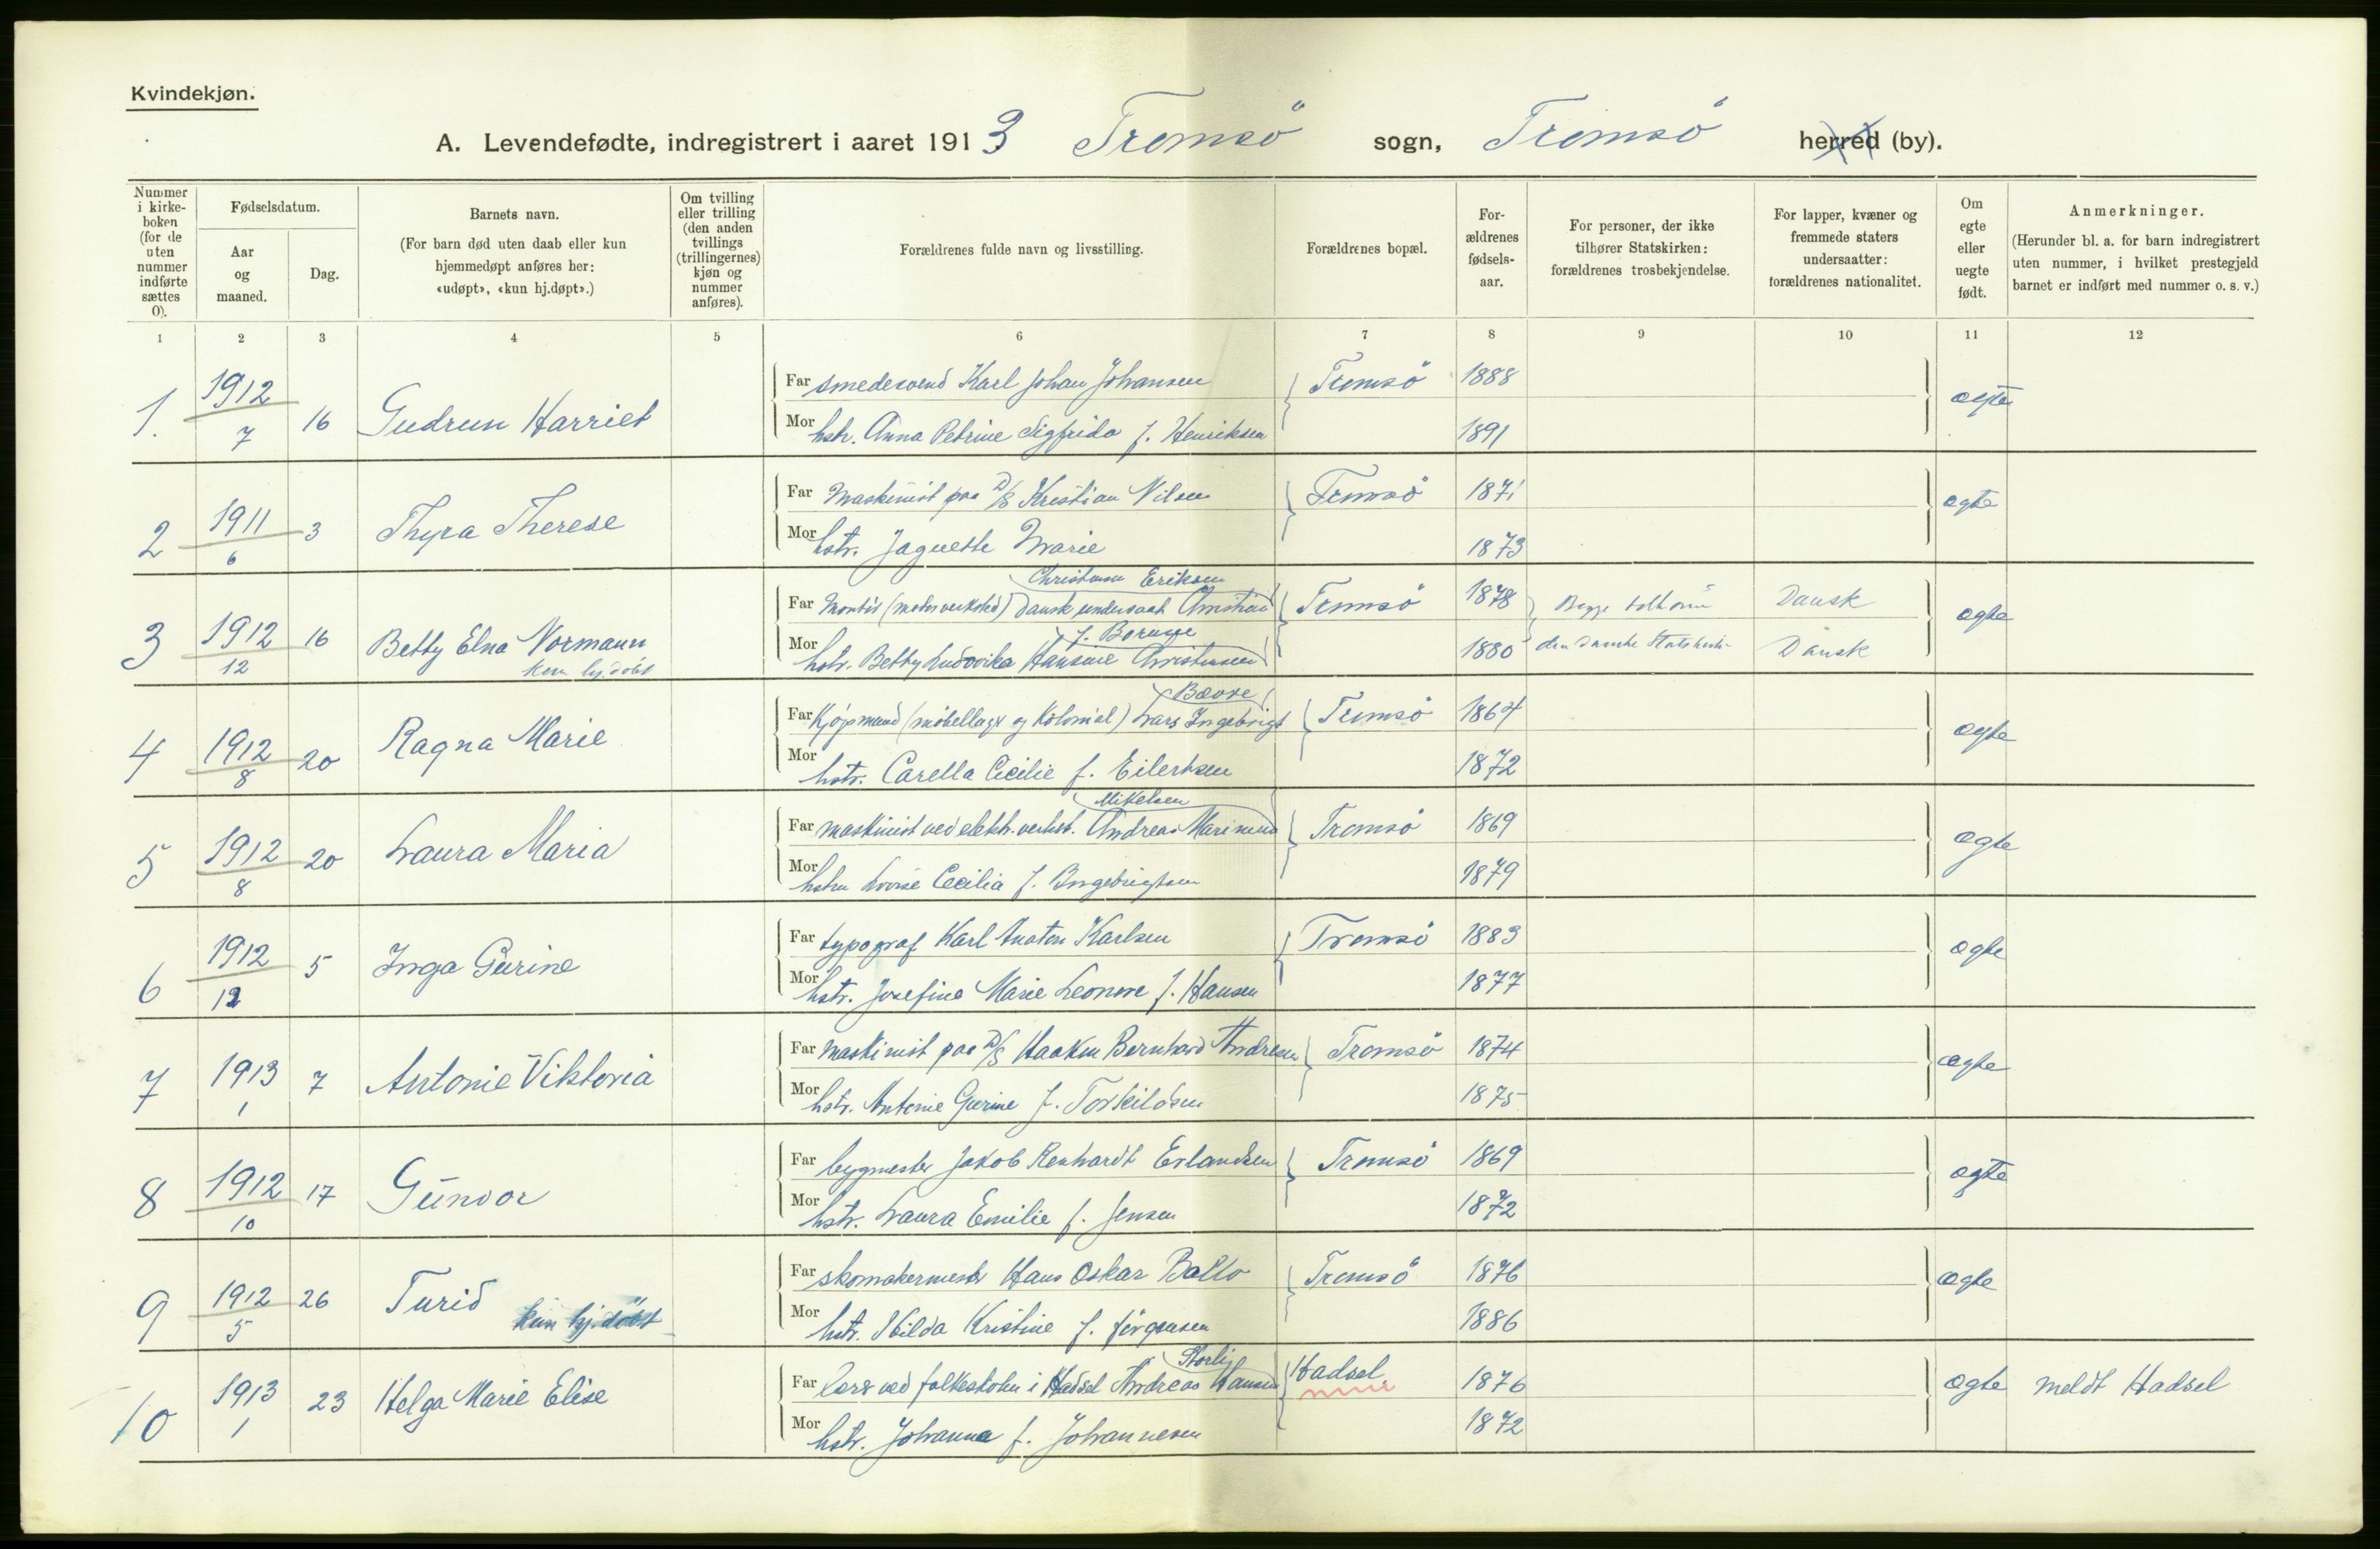 Kvindekjøn.
A. Levendefødte, indregistrert i aaret 1913 Tromsö sogn, Tromsö herred (by).
Nummer i kirke-boken (for de uten nummer indførte sættes 0).
Fødselsdatum.
Aar og maaned.
Dag.
Barnets navn.
(For barn død uten daab eller kun hjemmedøpt anføres her: «udøpt», «kun hj.døpt».)
Om tvilling eller trilling (den anden tvillings (trillingernes) kjøn og nummer anføres).
Forældrenes fulde navn og livsstilling.
Forældrenes bopæl.
For-ældrenes fødsels-aar.
For personer, der ikke tilhører Statskirken: forældrenes trosbekjendelse.
For lapper, kvæner og fremmede staters undersaatter: forældrenes nationalitet.
Om egte eller uegte født.
Anmerkninger.
(Herunder bl. a. for barn indregistrert uten nummer, i hvilket prestegjeld barnet er indført med nummer o. s. v.)
1 2 3 4 5 6 7 8 9 10 11 12
1. 1912 7 16 Gudrun Harriet
Far smedesvend Karl Johan Johansen Tromsö 1888 egte
Mor hstr. Anna Petrine Sigfrida f. Henriksen 1891
2 1911 6 3 Thyra Therese
Far Maskinist paa D/S Kristian Nilsen Tromsö 1871 egte
Mor hstr. Jaguette Marie 1873
3 1912 12 16 Betty Elna Normann kun hj.döbt
Christensen Eriksen
Far Montör (motorverksted) Dansk undersaat Christian Tromsö 1878 Begge tilhörer Dansk egte
f. Borusse
Mor hstr. Betty Ludovika Hansine Christensen 1880 den danske Statskirke Dansk
4 1912 8 20 Ragna Marie
Bævre
Far Kjöpmand (möbellager og Kolonial) Lars Ingebrigt Tromsö 1864 egte
Mor hstr. Carella Cecilie f. Eilertsen 1872
5 1912 8 20 Laura Maria
Mikelsen
Far maskinist ved elektr. verkst. Andreas Marinius Tromsö 1869 egte
Mor hstru Lovise Cecilia f. Ingebrigtsen 1879
6 1912 12 5 Inga Gurine
Far typograf Karl Anton Karlsen Tromsö 1883 egte
Mor hstr. Josefine Marie Leonore f. Hansen 1877
7 1913 1 7 Antonie Viktoria
Far Maskinist paa D/S Haakon Bernhard Andresen Tromsö 1874 egte
Mor hstr. Antonie Gurine f. Torkildsen 1875
8 1912 10 17 Gunvor
Far bygmester Jakob Renhardt Erlandsen Tromsö 1869 egte
Mor hstr. Laura Emilie f. Jensen 1872
9 1912 5 26 Turid kun hj.döbt
Far skomakermester Hans Oskar Ballo Tromsö 1876 egte
Mor hstr. Hilda Kristine f. Jörgensen 1886
10 1913 1 23 Helga Marie Elise
Storli
Far lærer ved folkeskolen i Hadsel Andreas Hansen Hadsel 1876 egte meldt Hadsel
Mor hstr. Johanna f. Johannesen 1872